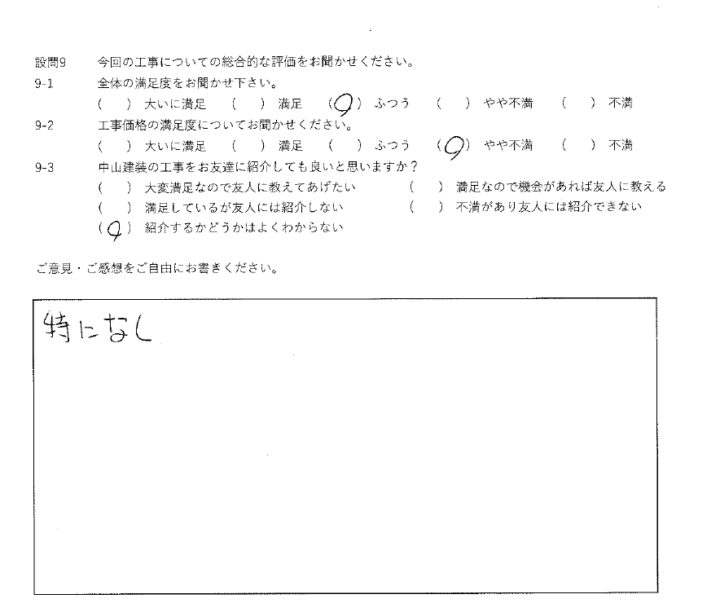 設問9 今回の工事についての総合的な評価をお聞かせください。
9-1 全体の満足度をお聞かせ下さい。
( ) 大いに満足 ( ) 満足 (○) ふつう ( ) やや不満 ( ) 不満
9-2 工事価格の満足度についてお聞かせください。
( ) 大いに満足 ( ) 満足 ( ) ふつう (○) やや不満 ( ) 不満
9-3 中山建装の工事をお友達に紹介しても良いと思いますか？
( ) 大変満足なので友人に教えてあげたい ( ) 満足なので機会があれば友人に教える
( ) 満足しているが友人には紹介しない ( ) 不満があり友人には紹介できない
(○) 紹介するかどうかはよくわからない
ご意見・ご感想をご自由にお書きください。
特になし